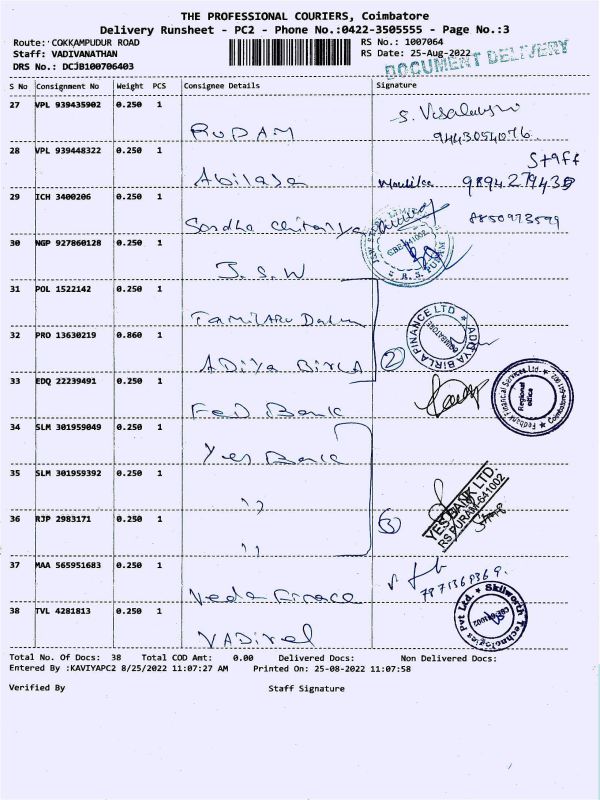 THE PROFESSIONAL COURIERS, Coimbatore
Delivery Runsheet - PC2 - Phone No.:0422-3505555 - Page No.:3
Route: COKKAMPUDUR ROAD RS No.: 1007064
Staff: VADIVANATHAN RS Date: 25-Aug-2022
DRS No.: DCJB100706403 DOCUMENT DELIVERY
S No Consignment No Weight PCS Consignee Details Signature
27 VPL 939435902 0.250 1
28 VPL 939448322 0.250 1
Staff
29 ICH 3400206 0.250 1
8850973599
30 NGP 927860128 0.250 1
J.S.W
31 POL 1522142 0.250 1
32 PRO 13630219 0.860 1
ADiya BirLA 2 ADITYA BIRLA FINANCE LTD COIMBATORE
33 EDQ 22239491 0.250 1
Fed Bank Fedbank Financial Services Ltd. Regional Office
34 SLM 301959049 0.250 1
Yes Bank
35 SLM 301959392 0.250 1
"
36 RJP 2983171 0.250 1
" 3 YES BANK LTD. RS PURAM-641002
37 MAA 565951683 0.250 1
38 TVL 4281813 0.250 1
VADivel Skilworth Technologies Pvt Ltd.
Total No. Of Docs: 38 Total COD Amt: 0.00 Delivered Docs: Non Delivered Docs:
Entered By :KAVIYAPC2 8/25/2022 11:07:27 AM Printed On: 25-08-2022 11:07:58
Verified By Staff Signature